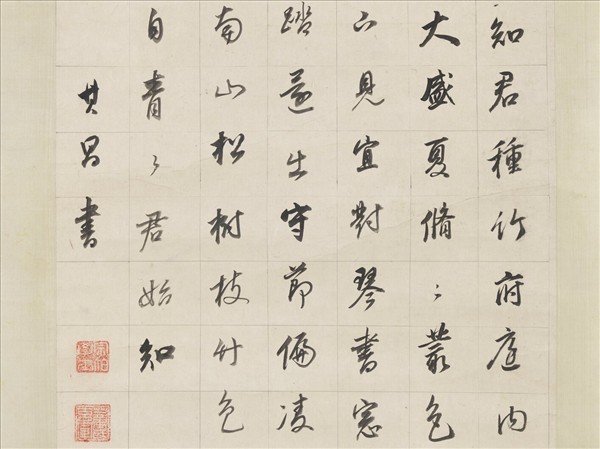 知君種竹府庭內
大盛夏脩〻叢色
下見宜對琴書窓
踏還出守節偏凌
南山松樹枝竹色
自青〻君始知
其昌書